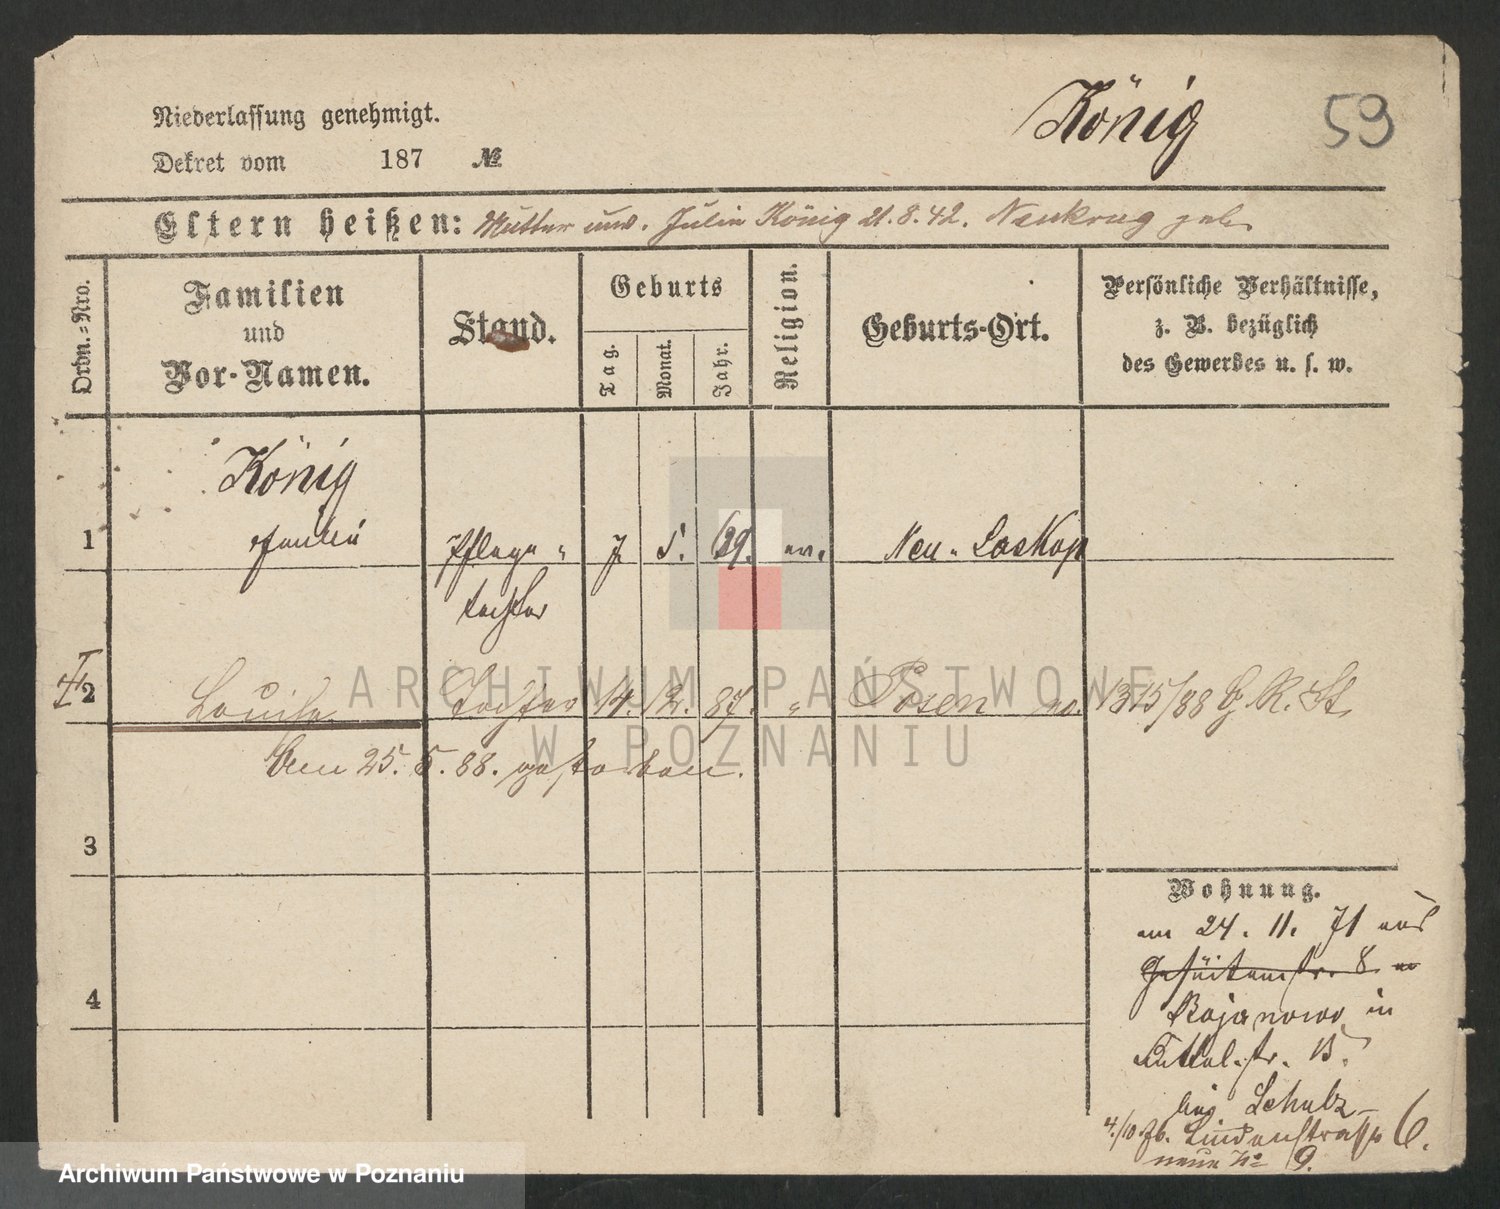 Niederlassung genehmigt.
König
59
Dekret vom 187 №
Eltern heißen: Mutter unv. Julie König 21.8.42. Neukrug geb.
Ordn.-Nro.
Familien
und
Vor-Namen.
Stand.
Geburts
Tag.
Monat.
Jahr.
Religion.
Geburts-Ort.
Persönliche Verhältnisse,
z. B. bezüglich
des Gewerbes u. s. w.
König
1 Pflege- 5. 69. ev. Neu-
tochter
2 Louise Tochter 14. 12. 87. " Posen no. 1315/88
Am 25. 5. 88. gestorben.
3
Wohnung.
am 24. 11. 71 aus
Jesuitenstr. 8
4
Bojanowo in
str. 15.
bei Schulz
4./10. 76. Lindenstrasse 6.
neue No 9.
ARCHIWUM PAŃSTWOWE
W POZNANIU
Archiwum Państwowe w Poznaniu